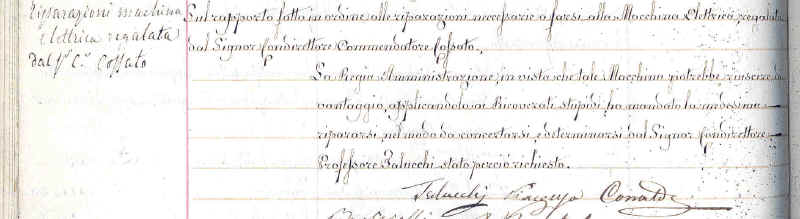 Riparazioni macchina
elettrica regalata
dal S.r C.r Cossato
Sul rapporto fatto in ordine alle riparazioni necessarie a farsi alla Macchina Elettrica, regalata
dal Signor Condirettore Commendatore Cossato.,
La Regia Amministrazione, in vista che tale Macchina potrebbe riuscire di
vantaggio, applicandola ai Ricoverati stupidi, ha mandato la medesima
ripararsi, nel modo da concertarsi, e determinarsi dal Signor Condirettore
Professore Balucchi stato perciò richiesto.